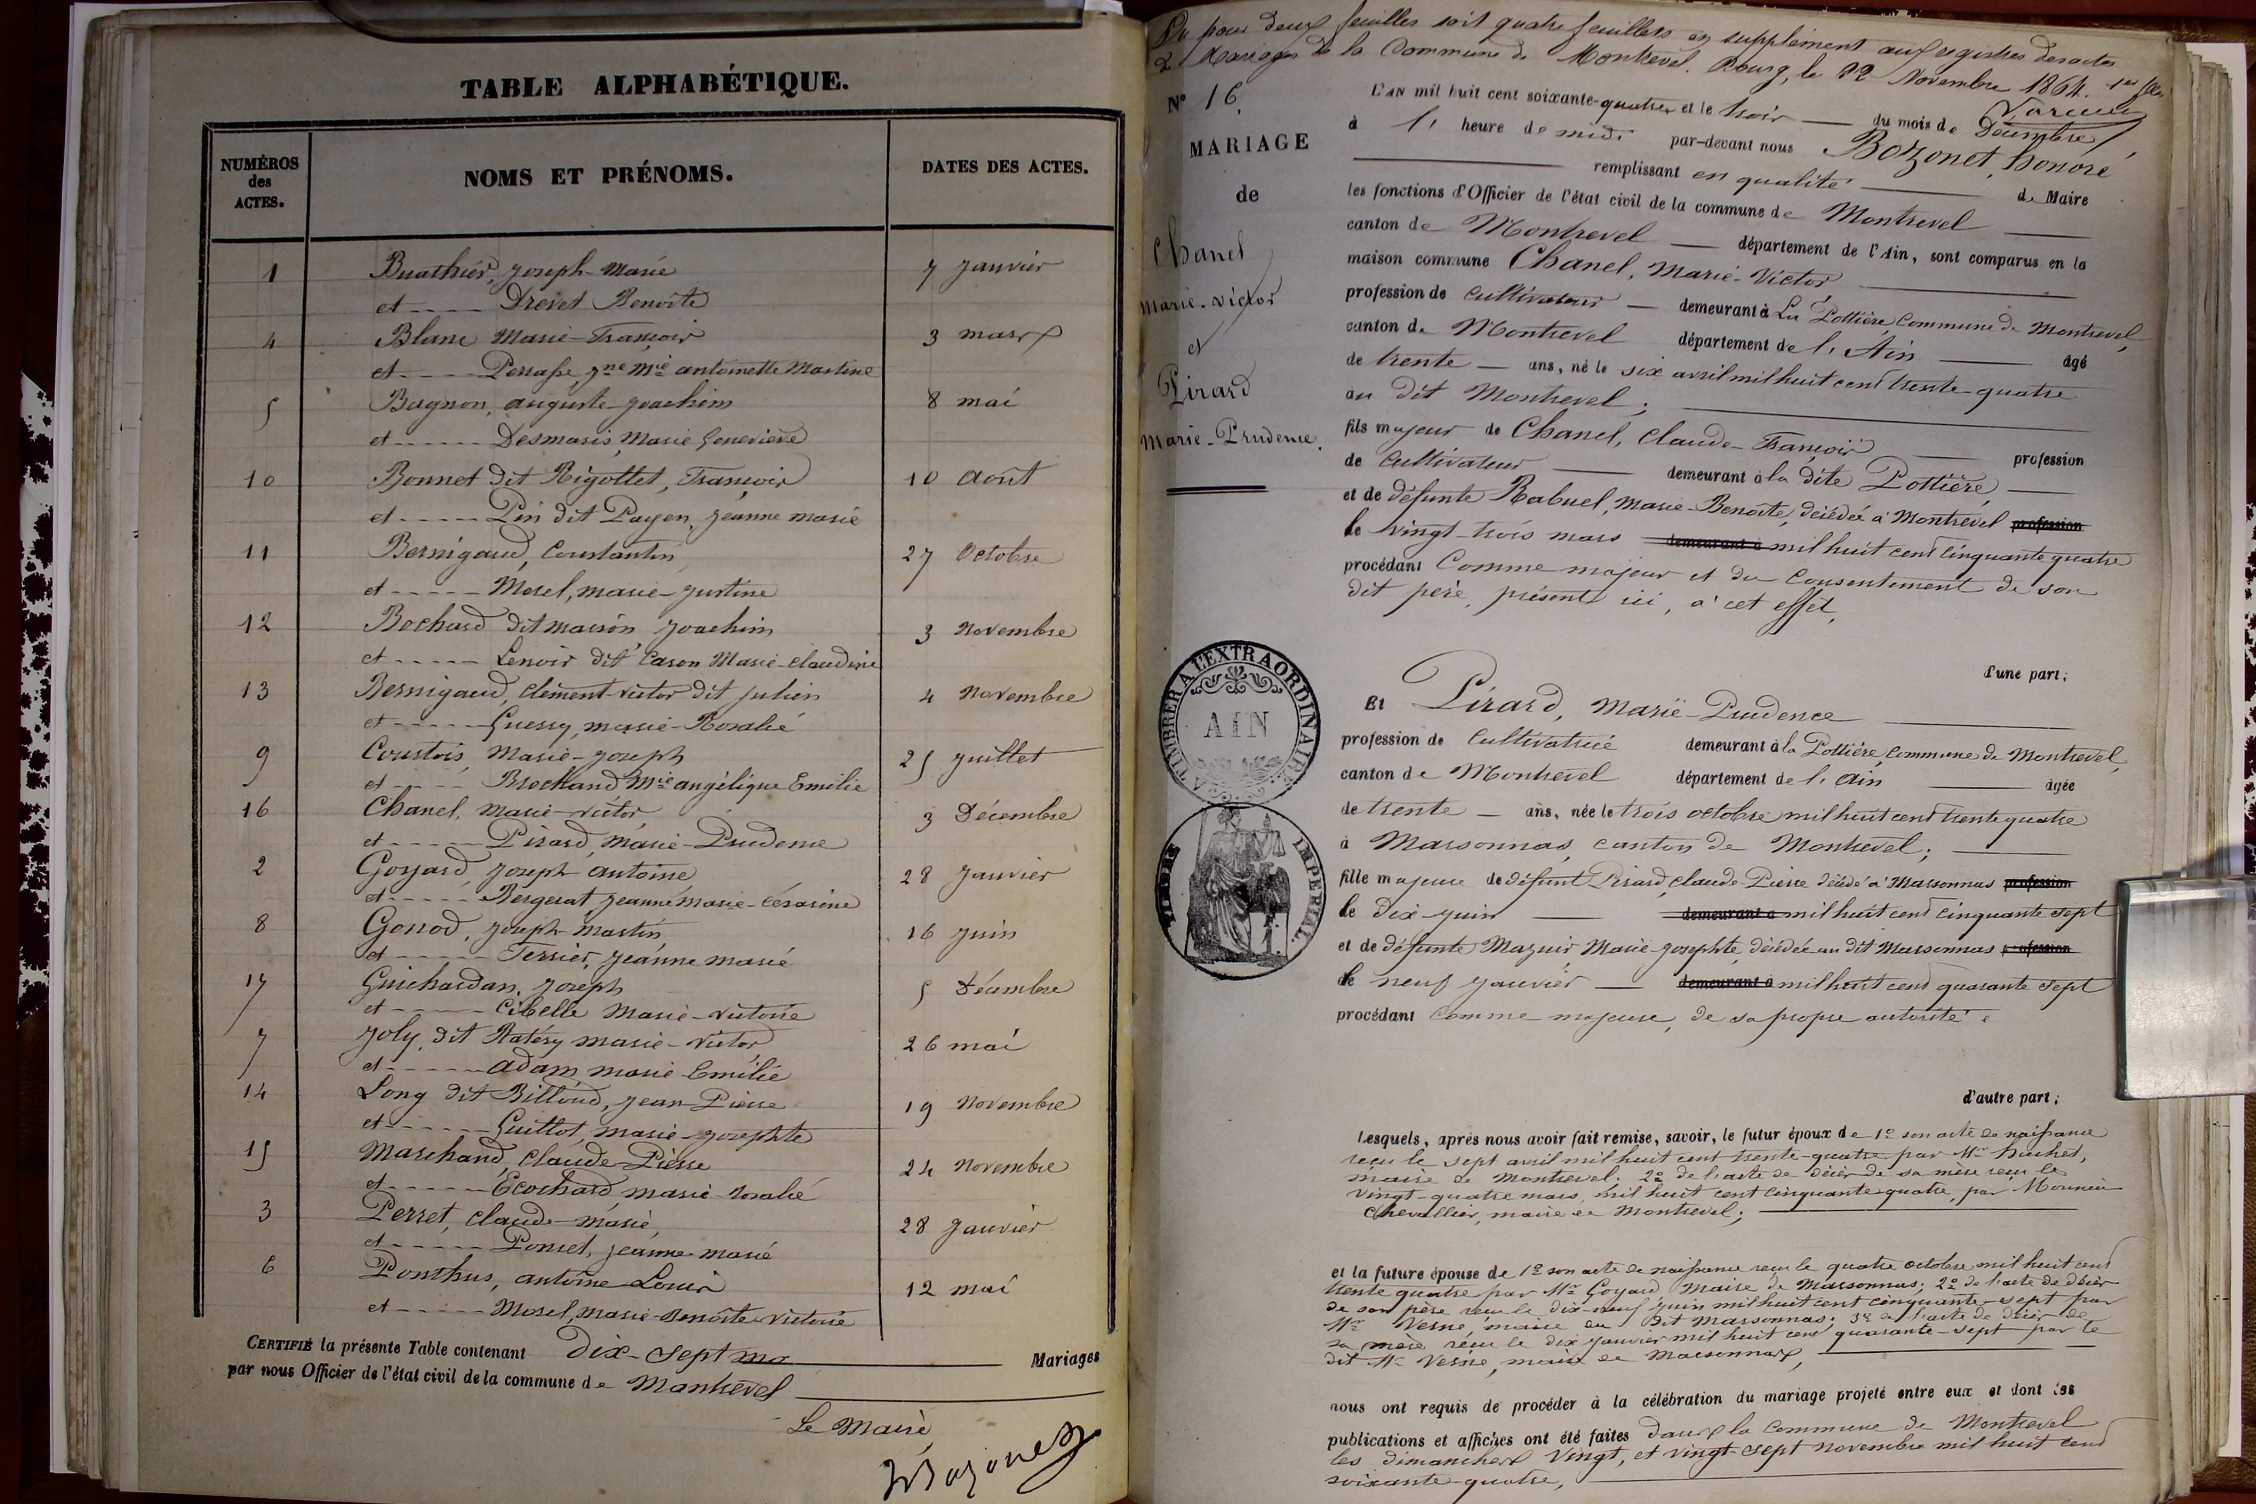 TABLE ALPHABÉTIQUE.
NUMÉROS des ACTES.
NOMS ET PRÉNOMS.
DATES DES ACTES.
1 Buathier, Joseph-Marie 7 Janvier
et Drevet Benoîte
4 Blanc Marie-François 3 mars
et Perrasse, Jne Mie antoinette Martine
5 Bagnon, auguste-Joachim 8 mai
et Desmaris, Marie Geneviève
10 Bonnet dit Rigollet, François 10 Août
et Pin dit Payen, Jeanne marie
11 Bernigaud, Constantin 27 Octobre
et Morel, marie-Justine
12 Bochard dit maison, Joachim 3 Novembre
et Lenoir dit Cason Marie-claudine
13 Bernigaud, clément-victor dit Julien 4 Novembre
et Guerry, marie-Rosalie
9 Courtois, Marie-Joseph 25 Juillet
et Brochand Mie angélique Emilie
16 Chanel, Marie-victor 3 Décembre
et Pirard, Marie-Prudence
2 Goyard, Joseph antoine 28 Janvier
et Bergerat Jeanne Marie-Césarine
8 Gonod, Joseph-martin 16 Juin
et Terrier, Jeanne marie
17 Guichardan, Joseph 5 Décembre
et Cibelle Marie-victoire
7 Joly, dit Ratéry marie-victor 26 mai
et adam marie Emilie
14 Long dit Billoud, Jean-Pierre 19 Novembre
et Guillot, marie-Josephte
15 Marchand, Claude-Pierre 24 Novembre
et Ecochard, marie-rosalie
3 Perret, claude-marie 28 Janvier
et Poncet, Jeanne-marie
6 Ponthus, antoine-Louis 12 mai
et Morel, marie-Benoîte-victoire
CERTIFIÉ la présente Table contenant Dix-Sept Mariages
par nous Officier de l'état civil de la commune de Montrevel
Le Maire,
Bozonet
Vu pour deux feuilles soit quatre feuillets en supplément aux registres des actes
de Mariages de la Commune de Montrevel. Bourg, le 22 Novembre 1864.
N° 16.
MARIAGE
de
Chanel
marie-victor
et
Pirard
Marie-Prudence.
L'AN mil huit cent soixante-quatre et le trois du mois de Décembre,
à l' heure de midi par-devant nous Bozonet, honoré
remplissant en qualité de Maire
les fonctions d'Officier de l'état civil de la commune de Montrevel
canton de Montrevel département de l'Ain, sont comparus en la
maison commune Chanel, Marie-Victor
profession de cultivateur demeurant à La Pottière, commune de Montrevel,
canton de Montrevel département de l'Ain âgé
de trente ans, né le six avril mil huit cent trente-quatre
au dit Montrevel;
fils majeur de Chanel, Claude-François profession
de cultivateur demeurant à la dite Pottière,
et de défunte Rabuel, Marie-Benoîte, décédée à Montrevel profession
le vingt-trois mars demeurant à mil huit cent cinquante quatre
procédant comme majeur et du consentement de son
dit père, présent ici, à cet effet,
d'une part;
A TIMBRER A L'EXTRAORDINAIRE
AIN
TIMBRE IMPERIAL
Et Pirard, Marie-Prudence
profession de cultivatrice demeurant à la Pottière, commune de Montrevel,
canton de Montrevel département de l'Ain âgée
de trente ans, née le trois octobre mil huit cent trente quatre
à Marsonnas, canton de Montrevel;
fille majeure de défunt Pirard, claude-Pierre décédé à Marsonnas profession
le dix-juin demeurant à mil huit cent cinquante sept
et de défunte Mazuir Marie-Josephte, décédée au dit Marsonnas profession
le neuf janvier demeurant à mil huit cent quarante sept
procédant comme majeure, de sa propre autorité
d'autre part;
Lesquels, après nous avoir fait remise, savoir, le futur époux de 1° son acte de naissance
reçu le sept avril mil huit cent trente-quatre par Mr huchet,
maire de Montrevel; 2° de l'acte de décès de sa mère reçu le
vingt-quatre mars, mil huit cent cinquante quatre, par
Chevallier, maire de Montrevel;
et la future épouse de 1° son acte de naissance reçu le quatre octobre mil huit cent
trente quatre par Mr Goyard, Maire de Marsonnas; 2° de l'acte de décès
de son père reçu le dix-neuf juin mil huit cent cinquante-sept par
Mr Verne, maire du dit Marsonnas; 3° de l'acte de décès de
sa mère, reçu le dix janvier mil huit cent quarante-sept par le
dit Mr Verne, maire de Marsonnas,
nous ont requis de procéder à la célébration du mariage projeté entre eux et dont les
publications et affiches ont été faites dans la commune de Montrevel
les dimanches vingt, et vingt-sept novembre mil huit cent
soixante-quatre,